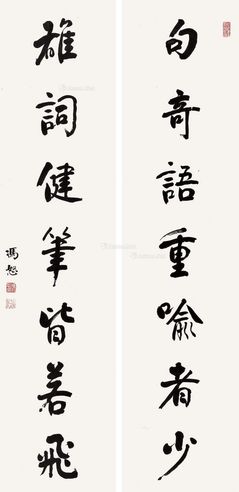 句奇語重喻者少
雄詞健筆皆若飛
馮恕